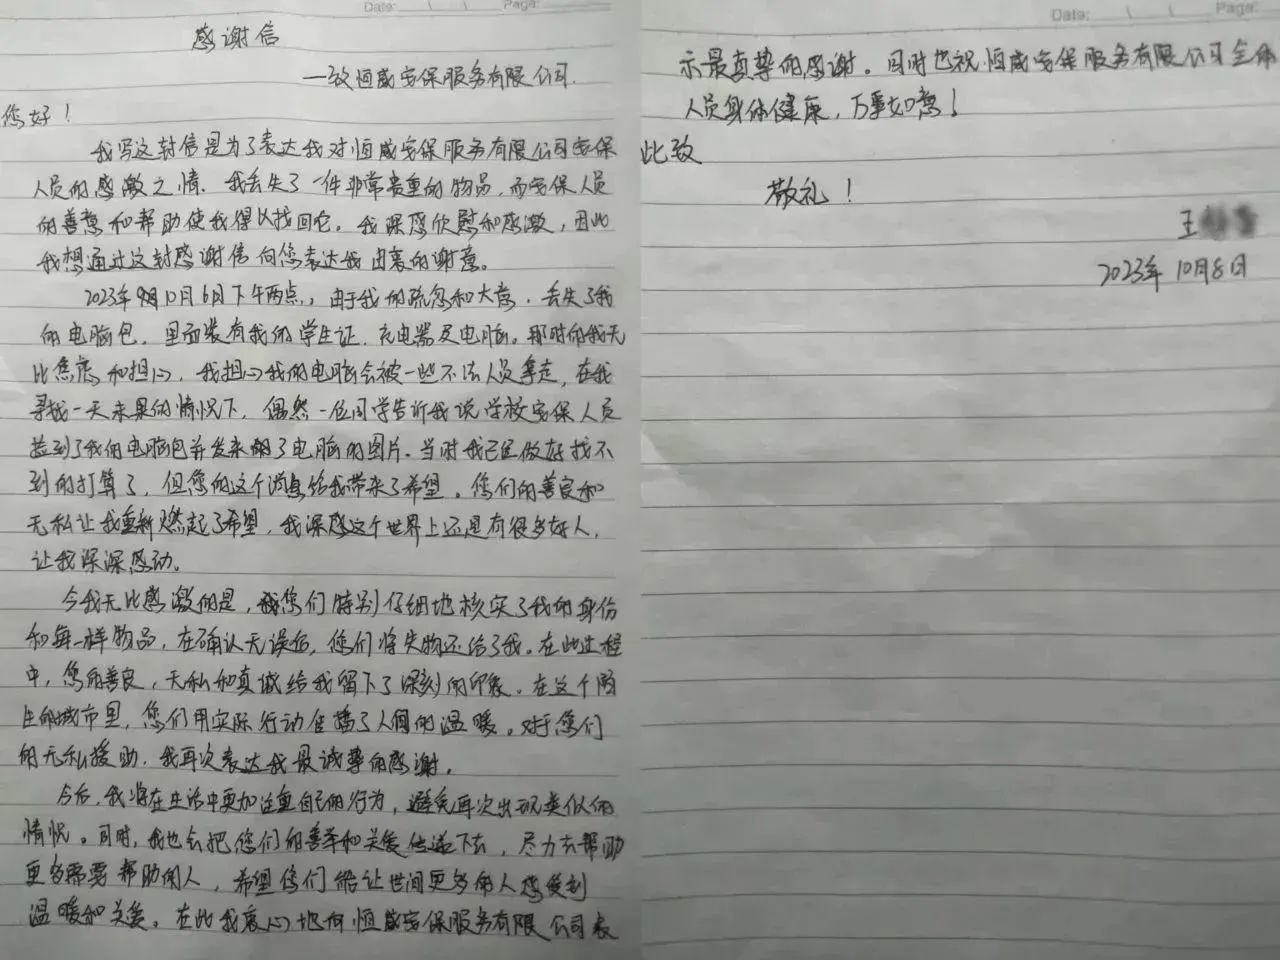 Date: \ \ Page:
感谢信
一致恒威安保服务有限公司.
您好！
我写这封信是为了表达我对恒威安保服务有限公司安保
人员的感激之情. 我丢失了一件非常贵重的物品，而安保人员
的善意和帮助使我得以找回它。我深感欣慰和感激，因此
我想通过这封感谢信向您表达我由衷的谢意。
2023年10月6日下午两点，由于我的疏忽和大意，丢失了我
的电脑包，里面装有我的学生证、充电器及电脑。那时的我无
比焦虑和担心，我担心我的电脑会被一些不法人员拿走，在我
寻找一天未果的情况下，偶然一位同学告诉我说学校安保人员
捡到了我的电脑包并发来了电脑的图片. 当时我已经做好找不
到的打算了，但您的这个消息给我带来了希望。您们的善良和
无私让我重新燃起了希望，我深感这个世界上还是有很多好人，
让我深深感动。
令我无比感激的是，您们特别仔细地核实了我的身份
和每一样物品，在确认无误后，您们将失物还给了我。在此过程
中，您的善良，无私和真诚给我留下了深刻的印象。在这个陌
生的城市里，您们用实际行动传播了人间的温暖。对于您们
的无私援助，我再次表达我最诚挚的感谢。
今后，我将在生活中更加注重自己的行为，避免再次出现类似的
情况。同时，我也会把您们的善举和关爱传递下去，尽力去帮助
更多需要帮助的人，希望您们能让世间更多的人感受到
温暖和关爱。在此我衷心地向恒威安保服务有限公司表
Date: \ \ Page:
示最真挚的感谢。同时也祝恒威安保服务有限公司全体
人员身体健康，万事如意！
此致
敬礼！
王
2023年10月8日